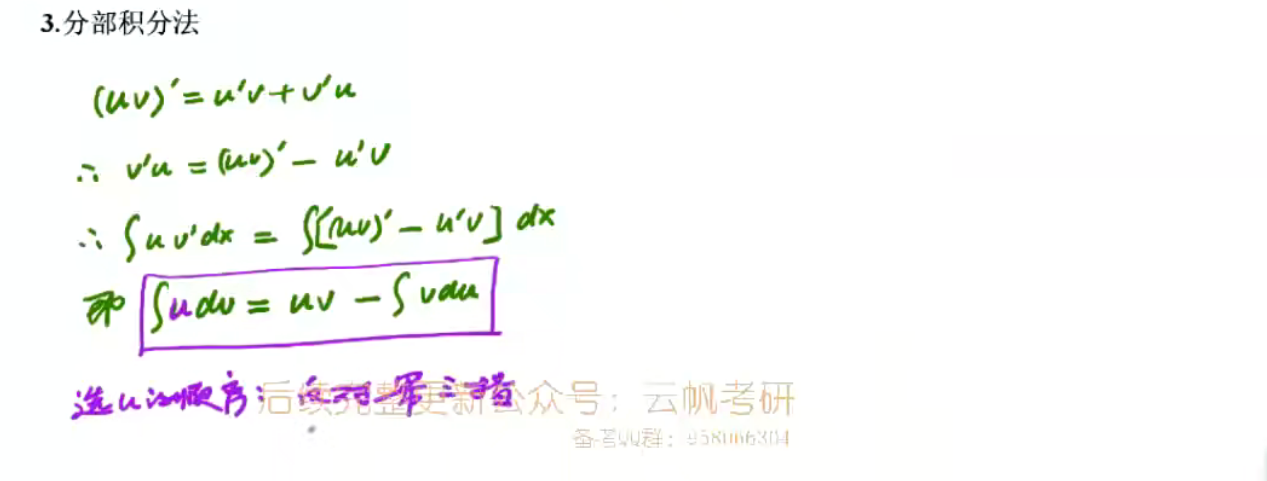 3.分部积分法
(uv)′=u′v+v′u
∴ v′u = (uv)′− u′v
∴ ∫uv′dx = ∫[(uv)′− u′v] dx
即 ∫udv = uv − ∫vdu
选u的顺序: 反对幂三指
后续完整更新公众号：云帆考研
备考QQ群：